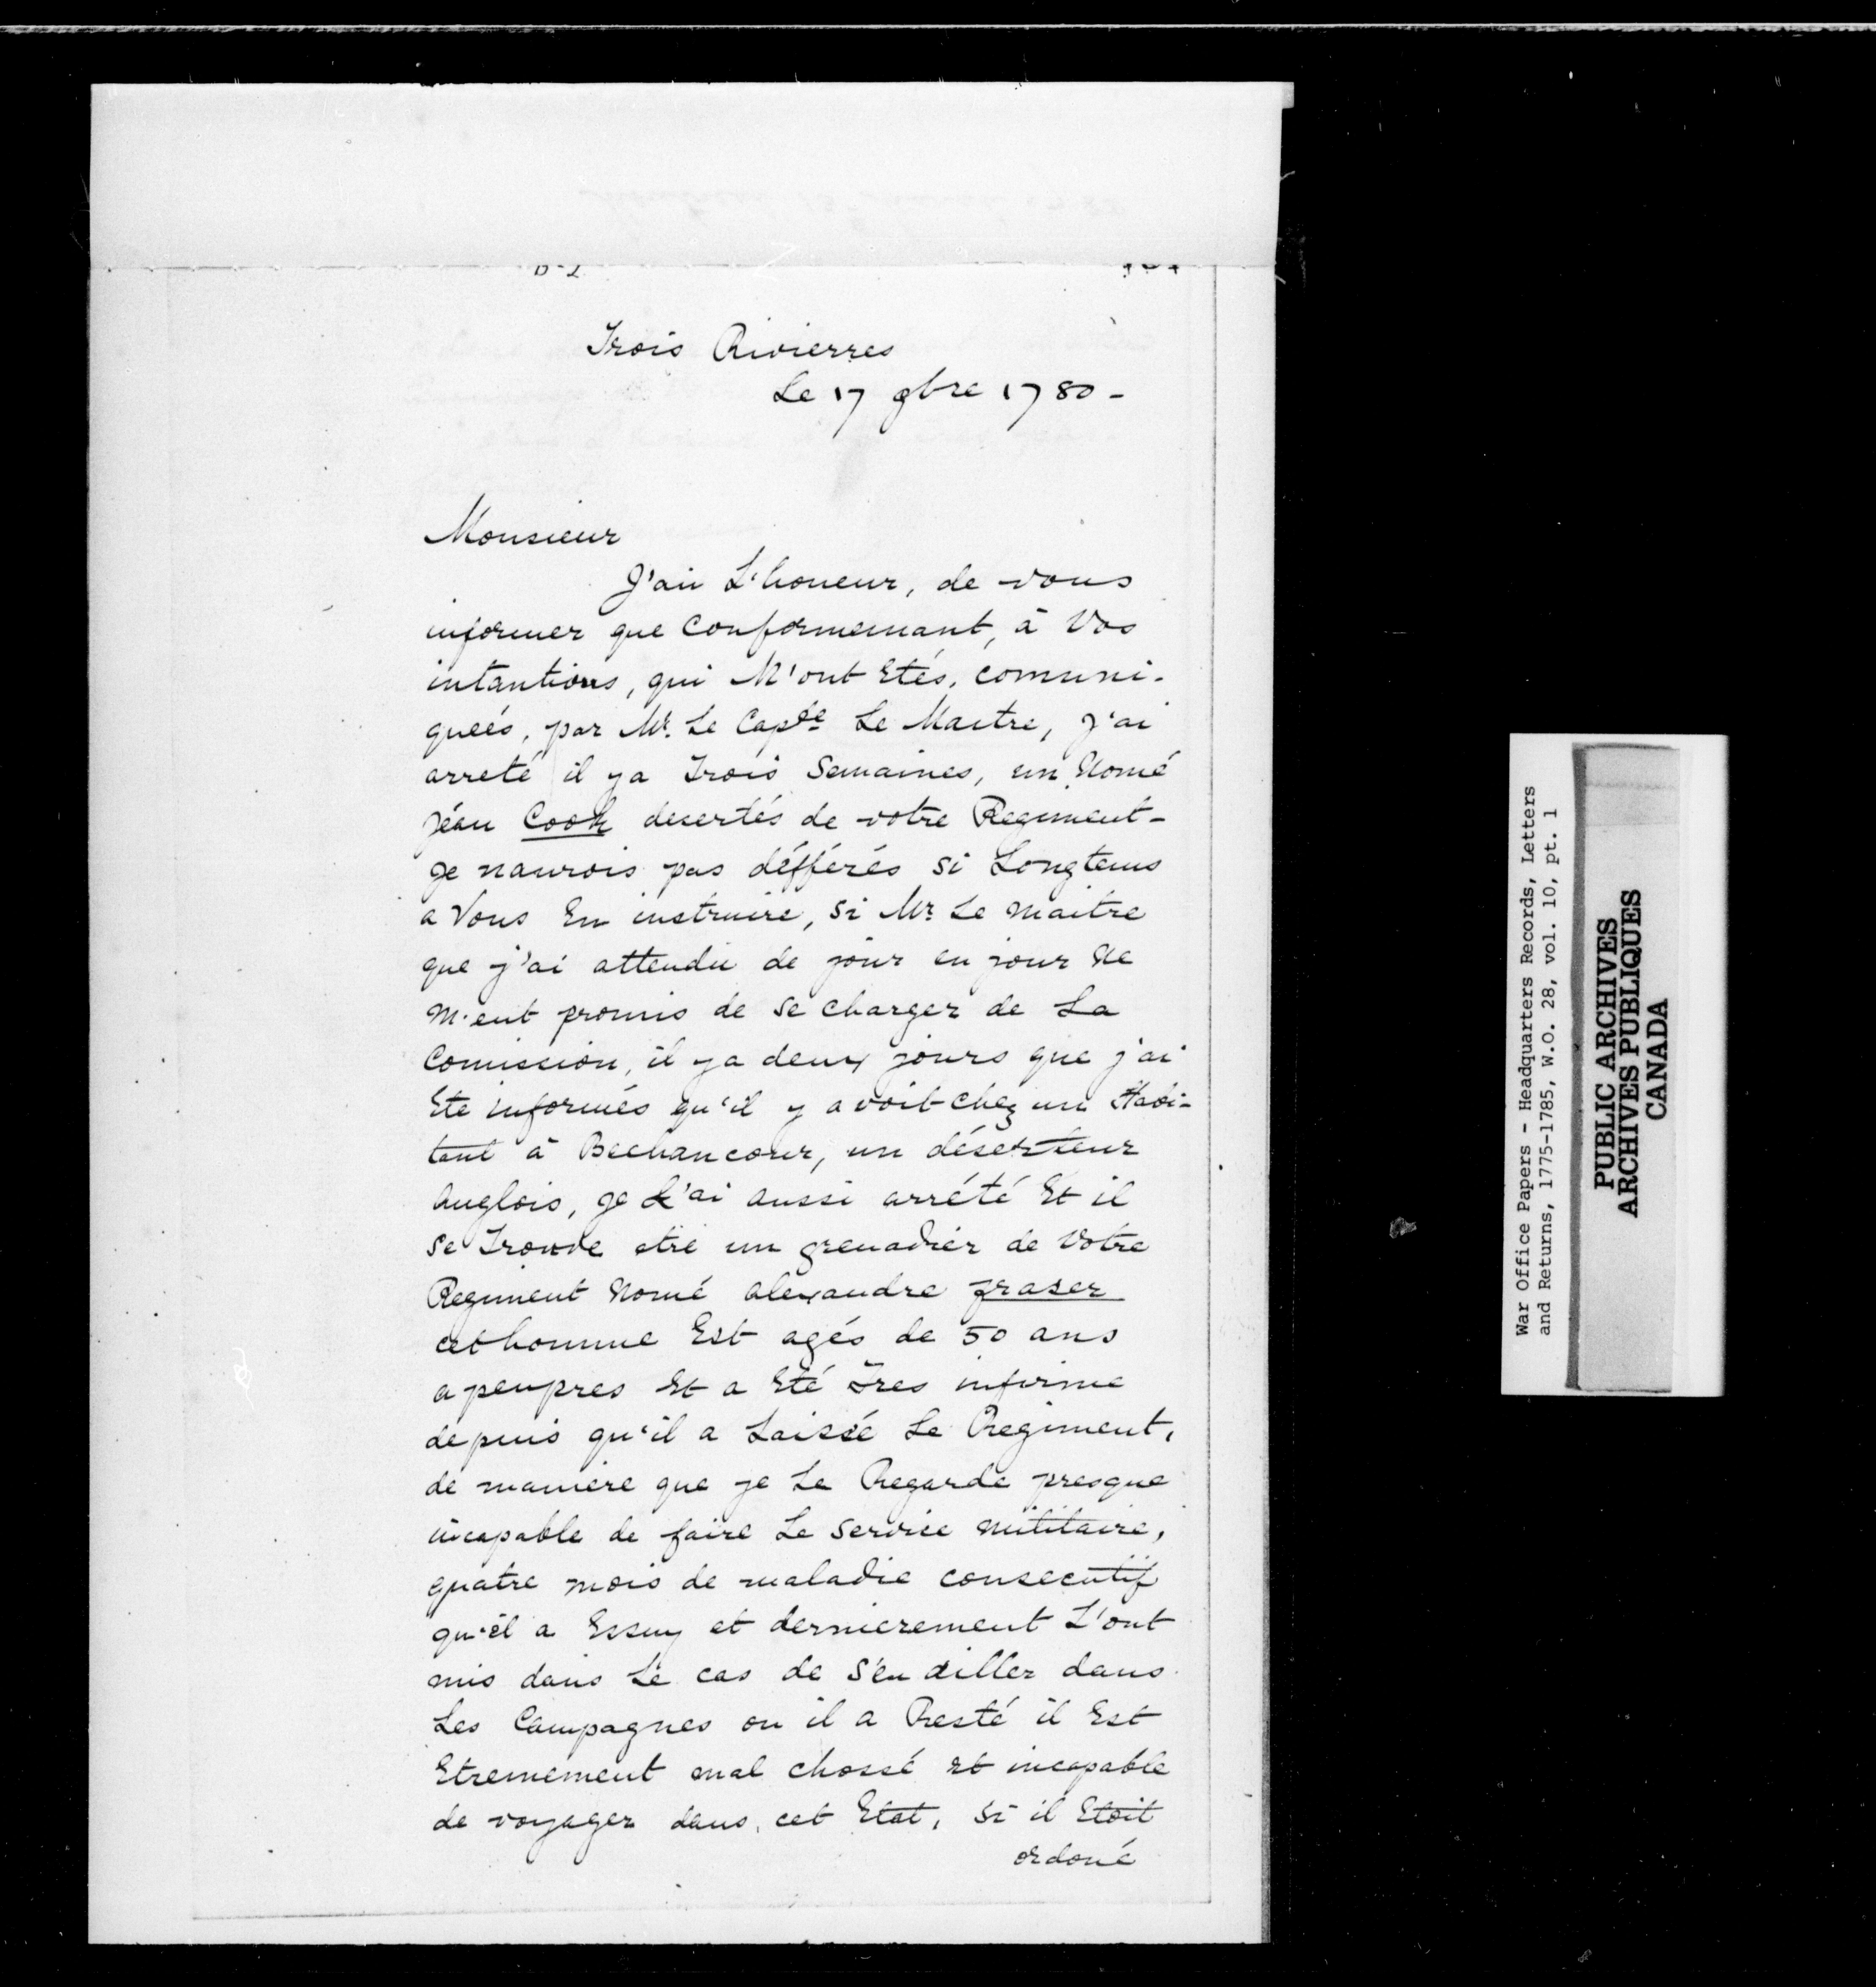 Trois Rivierres
Le 17 9bre 1780 -
Monsieur
J'ai L'honeur, de vous
informer que Conformemant, à Vos
intantions, qui M'ont Etés, comuni-
queés, par Mr. Le Capte Le Maitre, J'ai
arreté il ya Trois Semaines, un Nomé
Jéan Cook desertés de votre Regiment -
Je naurois pas défférés si Longtems
a Vous En instruire, si Mr Le Maitre
que j'ai attendu de jour en jour Ne
M'eut promis de se charger de La
Comission, il ya deux jours que j'ai
Ete informés qu'il y avoit chez un Habi-
tant à Bechancour, un déserteur
Anglois, je L'ai aussi arrété Et il
se Trouve etre un grenadier de Votre
Regiment Nomé alexandre fraser
cet homme Est agés de 50 ans
a peupres Et a Eté Tres infirme
depuis qu'il a Laissé Le Regiment,
de maniere que je Le Regarde presque
incapable de faire Le service militaire,
quatre mois de maladie consecutif
qu'il a Essuy et dernierement L'ont
mis dans Le cas de S'en aller dans
Les Campagnes ou il a Resté il Est
Etremement mal chossé et incapable
de voyager dans, cet Etat, si il Etoit
ordoné
War Office Papers - Headquarters Records, Letters
and Returns, 1775-1785, W.O. 28, vol. 10, pt. 1
PUBLIC ARCHIVES
ARCHIVES PUBLIQUES
CANADA